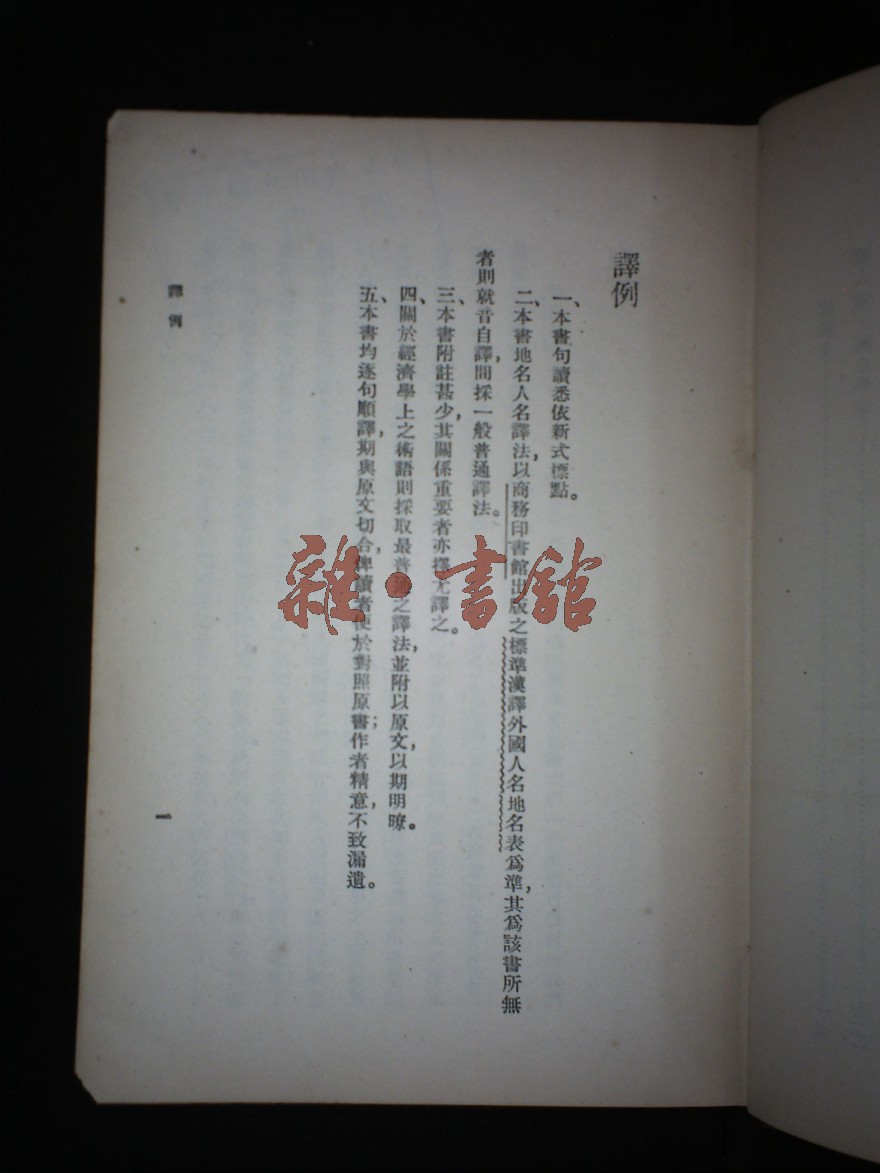 譯例
一、本書句讀悉依新式標點。
二、本書地名人名譯法,以商務印書館出版之標準漢譯外國人名地名表爲準,其爲該書所無
者則就音自譯,間採一般普通譯法。
三、本書附註甚少,其關係重要者亦擇尤譯之。
四、關於經濟學上之術語則採取最普通之譯法,並附以原文,以期明暸。
五、本書均逐句順譯,期與原文切合,俾讀者便於對照原書;作者精意,不致漏遺。
譯例
一
雜·書館